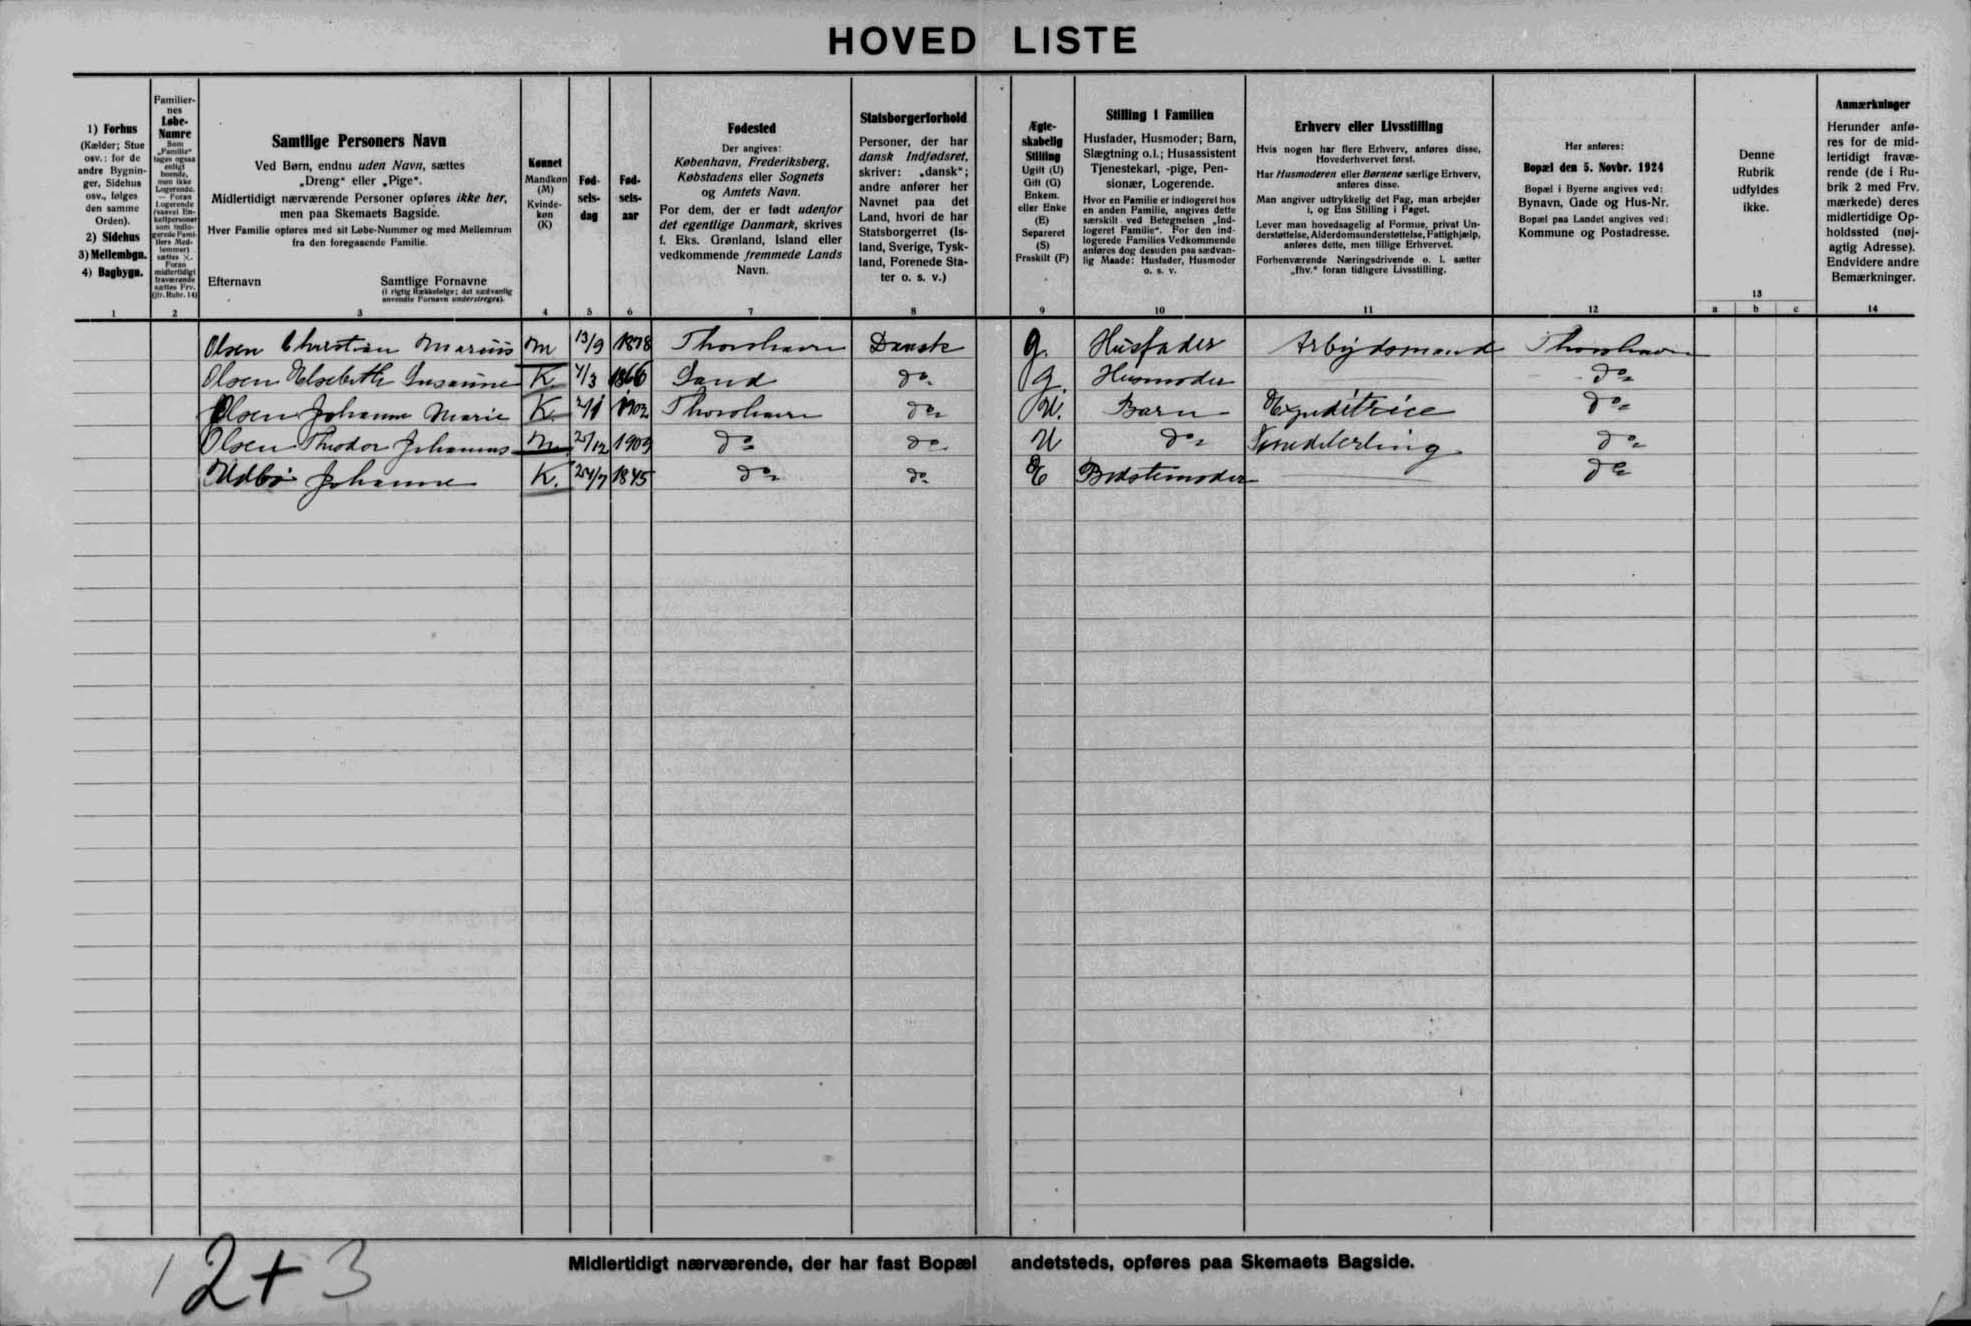 HOVED LISTE
1) Forhus
(Kælder; Stue
osv.: for de
andre Bygnin-
ger, Sidehus
osv., følges
den samme
Orden).
2) Sidehus
3) Mellembgn.
4) Bagbygn.
1
Familier-
nes
Løbe-
Numre
Som
„Familie"
tages ogsaa
enligt
boende,
men ikke
Logerende.
— Foran
Logerende
sættes X.
Foran
midlertidigt
fraværende
sættes Frv.
(jfr. Rubr. 14)
2
Samtlige Personers Navn
Ved Børn, endnu uden Navn, sættes
„Dreng" eller „Pige".
Midlertidigt nærværende Personer opføres ikke her,
men paa Skemaets Bagside.
Hver Familie opføres med sit Løbe-Nummer og med Mellemrum
fra den foregaaende Familie.
Efternavn Samtlige Fornavne
(i rigtig Rækkefølge; det sædvanlig
anvendte Fornavn understreges).
3
Kønnet
Mandkøn
(M)
Kvinde-
køn
(K)
4
Fød-
sels-
dag
5
Fød-
sels-
aar
6
Fødested
Der angives:
København, Frederiksberg,
Købstadens eller Sognets
og Amtets Navn.
For dem, der er født udenfor
det egentlige Danmark, skrives
f. Eks. Grønland, Island eller
vedkommende fremmede Lands
Navn.
7
Statsborgerforhold
Personer, der har
dansk Indfødsret,
skriver: „dansk";
andre anfører her
Navnet paa det
Land, hvori de har
Statsborgerret (Is-
land, Sverige, Tysk-
land, Forenede Sta-
ter o. s. v.)
8
Ægte-
skabelig
Stilling
Ugift (U)
Gift (G)
Enkem.
eller Enke
(E)
Separeret
(S)
Fraskilt (F)
9
Stilling i Familien
Husfader, Husmoder; Barn,
Slægtning o.l.; Husassistent
Tjenestekarl, -pige, Pen-
sionær, Logerende.
Hvor en Familie er indlogeret hos
en anden Familie, angives dette
særskilt ved Betegnelsen „Ind-
logeret Familie". For den ind-
logerede Families Vedkommende
anføres dog desuden paa sædvan-
lig Maade: Husfader, Husmoder
o. s. v.
10
Erhverv eller Livsstilling
Hvis nogen har flere Erhverv, anføres disse,
Hovederhvervet først.
Har Husmoderen eller Børnene særlige Erhverv,
anføres disse.
Man angiver udtrykkelig det Fag, man arbejder
i, og Ens Stilling i Faget.
Lever man hovedsagelig af Formue, privat Un-
derstøttelse, Alderdomsunderstøttelse, Fattighjælp,
anføres dette, men tillige Erhvervet.
Forhenværende Næringsdrivende o. l. sætter
„fhv." foran tidligere Livsstilling.
11
Her anføres:
Bopæl den 5. Novbr. 1924
Bopæl i Byerne angives ved:
Bynavn, Gade og Hus-Nr.
Bopæl paa Landet angives ved:
Kommune og Postadresse.
12
Denne
Rubrik
udfyldes
ikke.
13
a b c
Anmærkninger
Herunder anfø-
res for de mid-
lertidigt fravæ-
rende (de i Ru-
brik 2 med Frv.
mærkede) deres
midlertidige Op-
holdssted (nøj-
agtig Adresse).
Endvidere andre
Bemærkninger.
14
Olsen Christian Marius M 13/9 1878 Thorshavn Dansk g. Husfader Arbejdsmand Thorshavn
Olsen Elsebeth Susanne K 4/3 1866 Sand do g. Husmoder do
Olsen Johanne Marie K. 1902 Thorshavn do U. Barn Expeditrice do
Olsen Thodor Johannes M 1909 do do U do do
Johanne K. 24/7 1845 do do E Bedstemoder do
Midlertidigt nærværende, der har fast Bopæl andetsteds, opføres paa Skemaets Bagside.
2+3